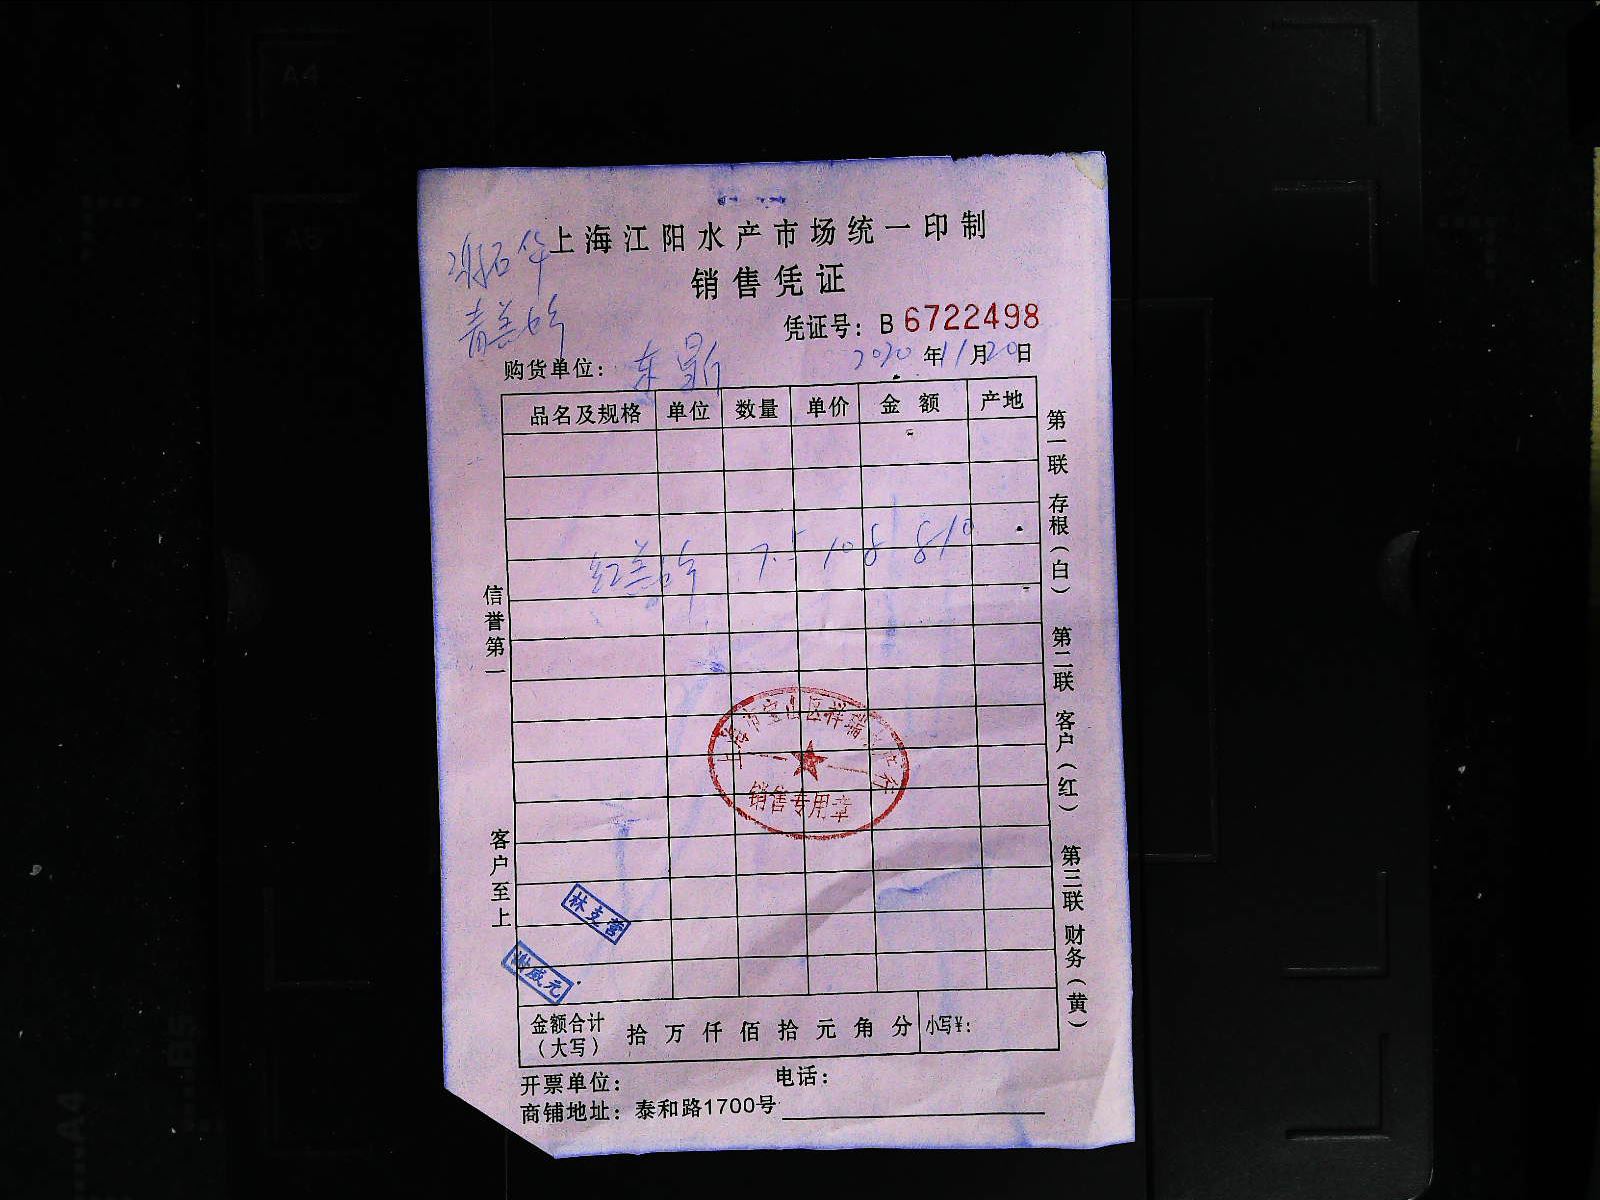 上海江阳水产市场统一印制
销售凭证
凭证号：B 6722498
购货单位：东
2020年11月20日
品名及规格 单位 数量 单价 金额 产地
红 7.5 108 810
信誉第一
客户至上
第一联 存根（白） 第二联 客户（红） 第三联 财务（黄）
上海市宝山区祥瑞 行
销售专用章
林克营
谢威元
金额合计（大写） 拾 万 仟 佰 拾 元 角 分 小写¥：
开票单位： 电话：
商铺地址：泰和路1700号
A4
A5
B5
A4